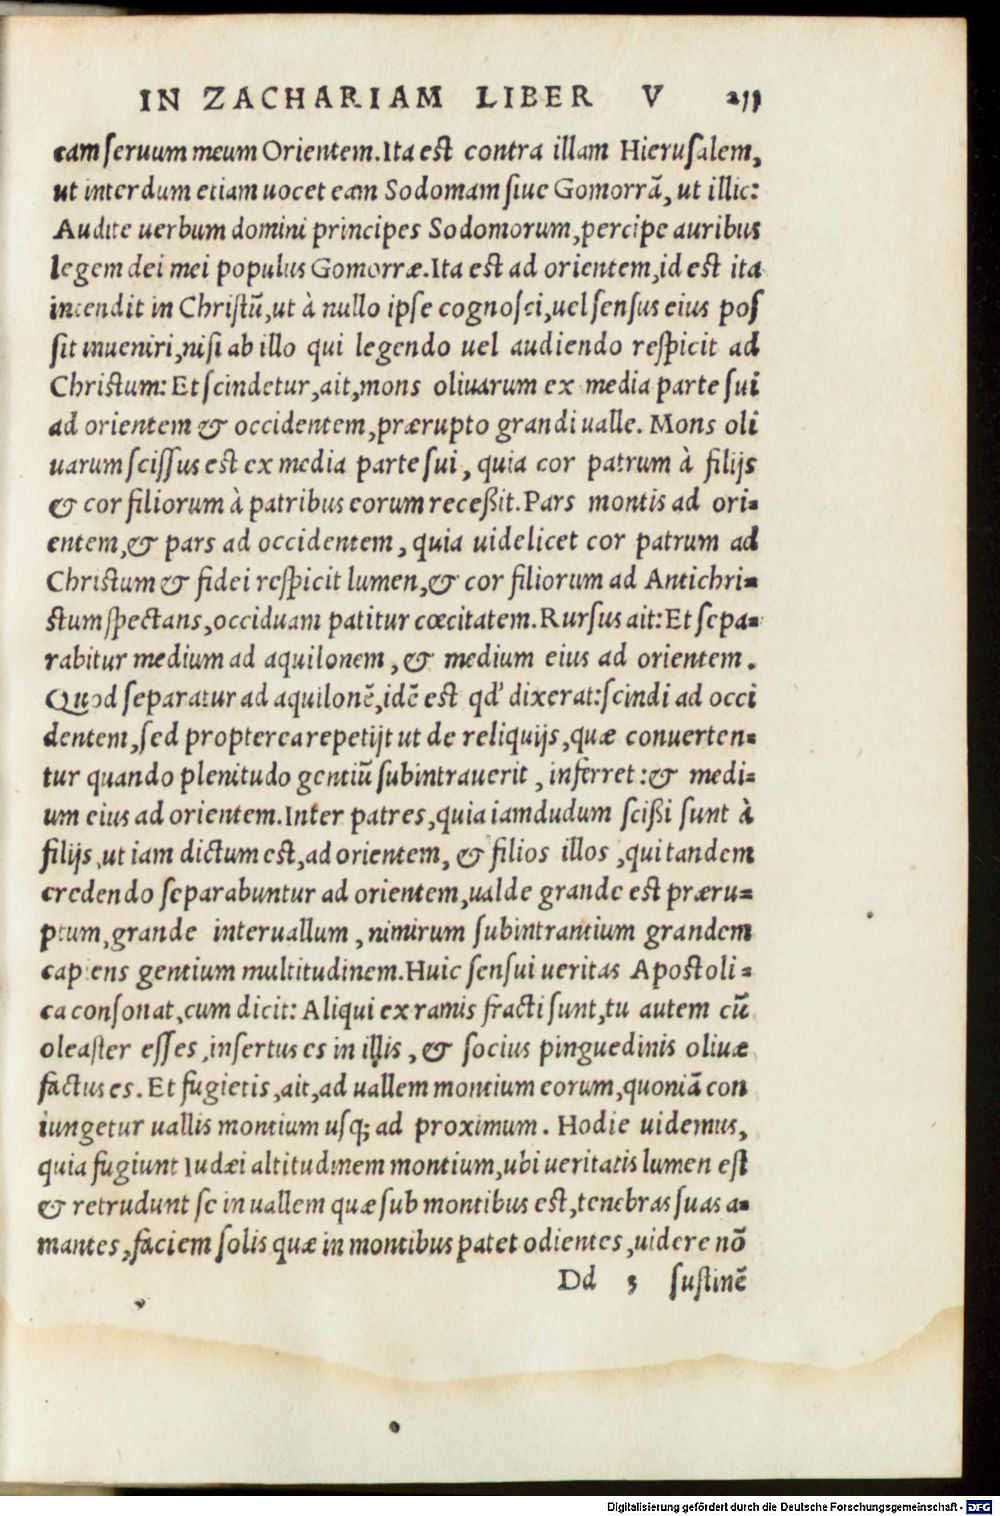 IN ZACHARIAM LIBER V 211
cam ſeruum meum Orientem. Ita est contra illam Hieruſalem,
ut interdum etiam uocet eam Sodomam ſiue Gomorrā, ut illic:
Audite uerbum domini principes Sodomorum, percipe auribus
legem dei mei populus Gomorræ. Ita est ad orientem, id est ita
intendit in Chriſtū, ut à nullo ipſe cognoſci, uel ſenſus eius poſ
ſit inueniri, niſi ab illo qui legendo uel audiendo reſpicit ad
Christum: Et ſcindetur, ait, mons oliuarum ex media parte ſui
ad orientem & occidentem, prærupto grandi ualle. Mons oli
uarum ſciſſus est ex media parte ſui, quia cor patrum à filijs
& cor filiorum à patribus eorum receßit. Pars montis ad ori-
entem, & pars ad occidentem, quia uidelicet cor patrum ad
Christum & fidei reſpicit lumen, & cor filiorum ad Antichri-
stum ſpectans, occiduam patitur cœcitatem. Rurſus ait: Et ſepa-
rabitur medium ad aquilonem, & medium eius ad orientem.
Quod ſeparatur ad aquilonē, idē est qd' dixerat: ſcindi ad occi
dentem, ſed propterea repetijt ut de reliquijs, quæ conuerten-
tur quando plenitudo gentiū ſubintrauerit, inferret: & medi-
um eius ad orientem. Inter patres, quia iamdudum ſcißi ſunt à
filijs, ut iam dictum est, ad orientem, & filios illos, qui tandem
credendo ſeparabuntur ad orientem, ualde grande est præru-
ptum, grande interuallum, nimirum ſubintrantium grandem
capiens gentium multitudinem. Huic ſenſui ueritas Apostoli-
ca conſonat, cum dicit: Aliqui ex ramis fracti ſunt, tu autem cū
oleaſter eſſes, inſertus es in illis, & ſocius pinguedinis oliuæ
factus es. Et fugietis, ait, ad uallem montium eorum, quoniā con
iungetur uallis montium uſq; ad proximum. Hodie uidemus,
quia fugiunt Iudæi altitudinem montium, ubi ueritatis lumen est
& retrudunt ſe in uallem quæ ſub montibus est, tenebras ſuas a-
mantes, faciem ſolis quæ in montibus patet odientes, uidere nō
Dd 3 ſuſtinē
Digitalisierung gefördert durch die Deutsche Forschungsgemeinschaft - DFG